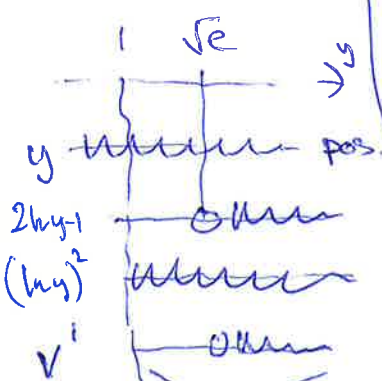 1 √e
y
y pos.
2lny-1
(lny)²
V'